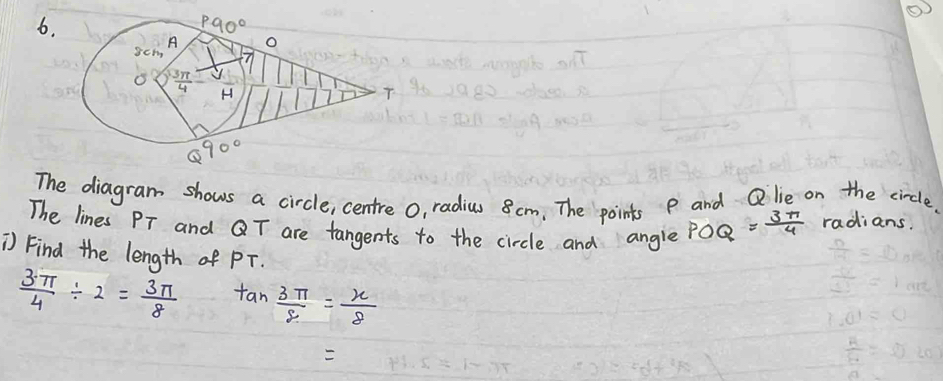 6.
P90°
A O
8cm
O 3π/4 H T
Q90°
The diagram shows a circle, centre O, radius 8cm, The points P and Q lie on the circle.
The lines PT and QT are tangents to the circle and angle POQ = 3π/4 radians.
i) Find the length of PT.
3π/4 ÷ 2 = 3π/8 tan 3π/8 = x/8
=